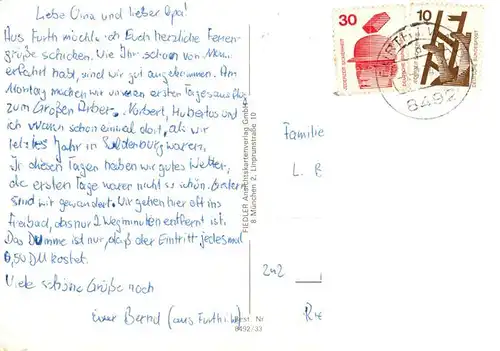 Liebe Oma und lieber Opa!
Aus Furth möchte ich Euch herzliche Ferien-
grüße schicken. Wie Ihr schon von
erfahrt habt, sind wir gut angekommen. Am
Montag machen wir unseren ersten Tagesausflug
zum Großen Arber. Norbert, Hubertus und
ich waren schon einmal dort, als wir
letztes Jahr in waren.
In diesen Tagen haben wir gutes Wetter,
die ersten Tage waren nicht so schön.
sind wir gewandert. Wir gehen hier oft ins
Freibad, das nur 2 Wegminuten entfernt ist.
Das Dumme ist nur, daß der Eintritt jedesmal
0,50 DM kostet.
Viele schöne Grüße noch
Euer Bernd (aus Furth i. W.)
FIEDLER Ansichtskartenverlag GmbH
8 München 2, Linprunstraße 10
Best. Nr.
8492/33
30
10
FURTH I. W.
8492
Familie
L. B
242